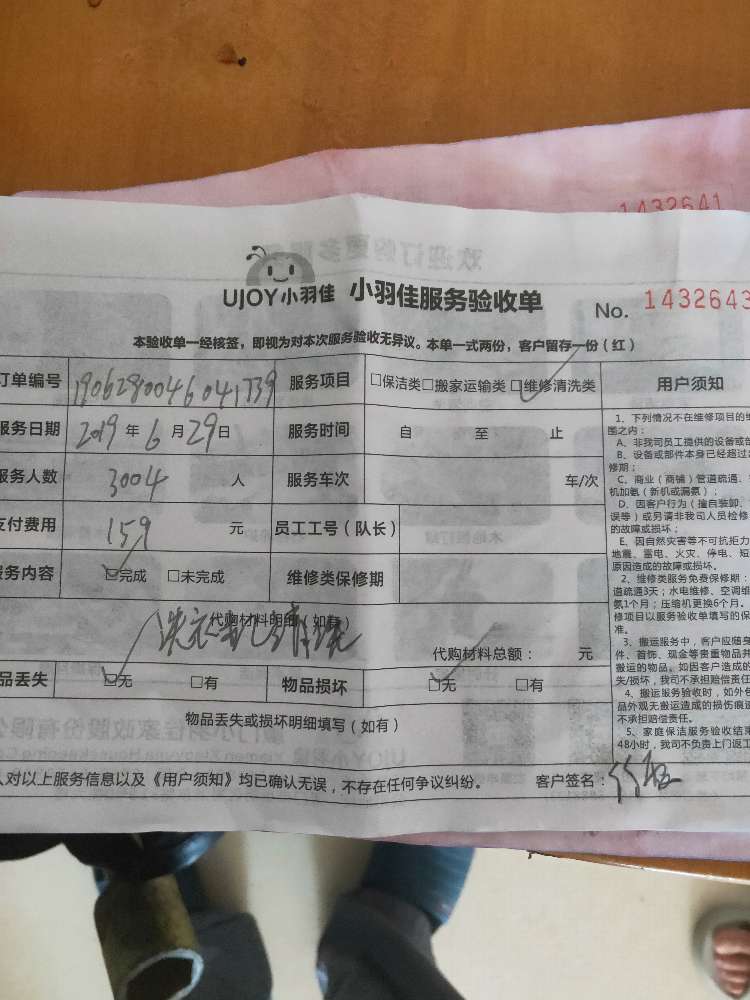 1432641
UJOY小羽佳 小羽佳服务验收单 No. 1432643
本验收单一经核签，即视为对本次服务验收无异议。本单一式两份，客户留存一份（红）
订单编号 1906280046041739 服务项目 □保洁类□搬家运输类□维修清洗类 用户须知
服务日期 2019 年 6 月 29 日 服务时间 自 至 止
服务人数 3004 人 服务车次 车/次
支付费用 159 元 员工工号（队长）
服务内容 □完成 □未完成 维修类保修期
代购材料明细（如有）
洗衣机清洗
代购材料总额： 元
品丢失 □无 □有 物品损坏 □无 □有
物品丢失或损坏明细填写（如有）
人对以上服务信息以及《用户须知》均已确认无误，不存在任何争议纠纷。 客户签名：
1、下列情况不在维修项目的维
围之内：
A、非我司员工提供的设备或部
B、设备或部件本身已经超过
修期；
C、商业（商铺）管道疏通、
机加氨（新机或漏氨）；
D、因客户行为（擅自装卸、
误等）或另请非我司人员检修
的故障或损坏；
E、因自然灾害等不可抗拒力
地震、雷电、火灾、停电、短
原因造成的故障或损坏。
2、维修类服务免费保修期：
道疏通3天；水电维修、空调维
氨1个月；压缩机更换6个月。
修项目以服务验收单填写的保
准。
3、搬运服务中，客户应随身
件、首饰、现金等贵重物品并
搬运的物品。如因客户造成的
失/损坏，我司不承担赔偿责任
4、搬运服务验收时，如外包
品外观无搬运造成的损伤痕迹
不承担赔偿责任。
5、家庭保洁服务验收结束
48小时，我司不负责上门返工